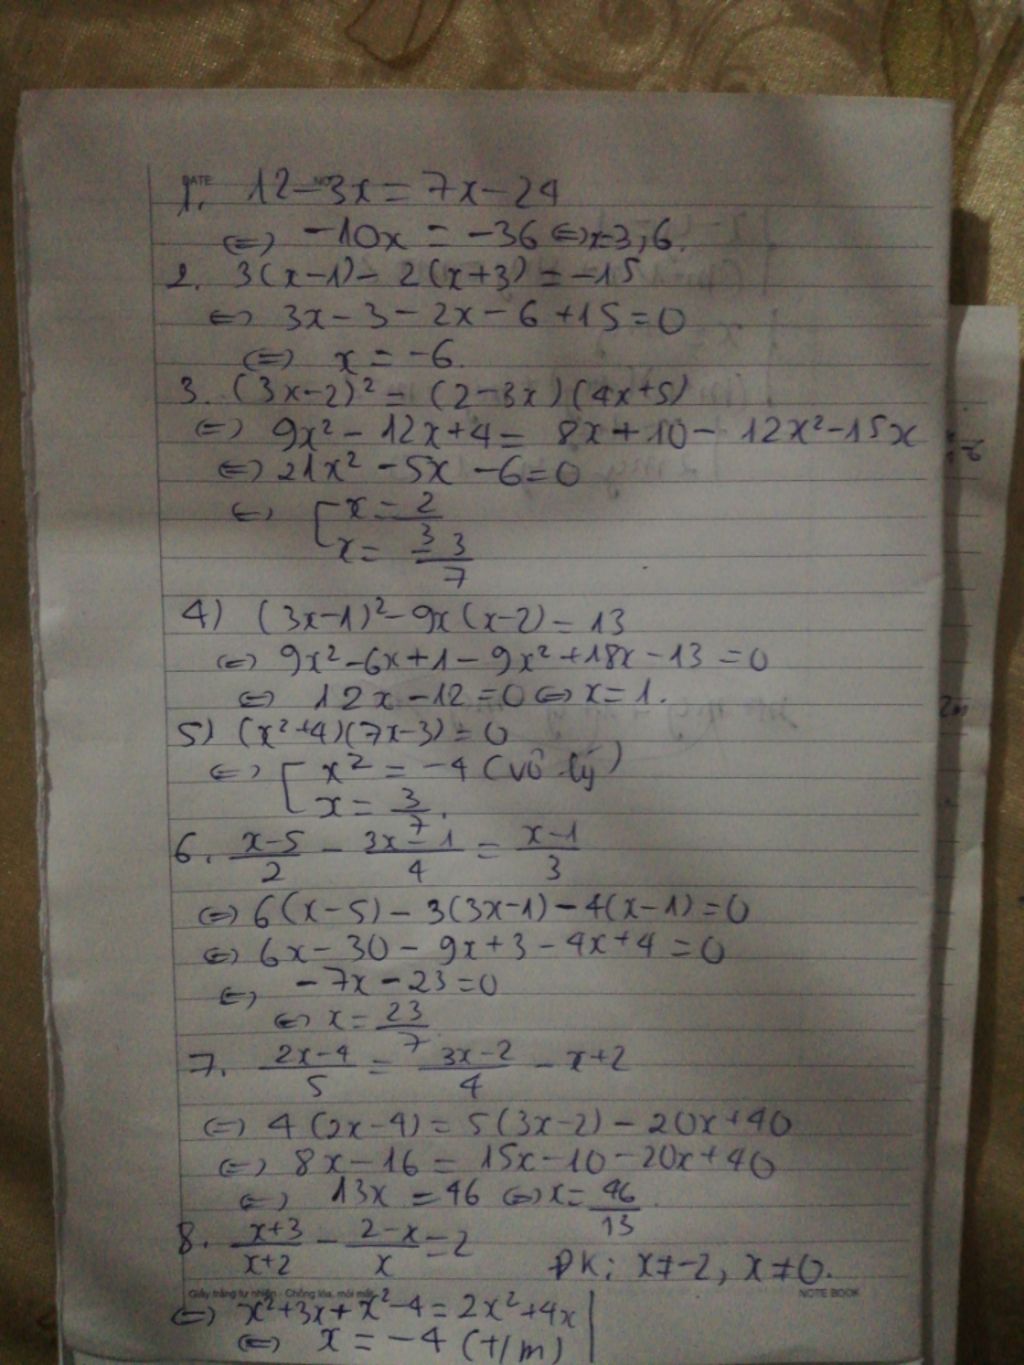 DATE NO
1. 12-3x = 7x-24
⇔ -10x = -36 ⇔ x=3,6.
2. 3(x-1) - 2(x+3) = -15
⇔ 3x-3-2x-6+15=0
⇔ x = -6.
3. (3x-2)² = (2-3x)(4x+5)
⇔ 9x²-12x+4 = 8x+10-12x²-15x
⇔ 21x²-5x-6=0
⇔ [ x = 2/3
x = -3/7
4) (3x-1)²-9x(x-2) = 13
⇔ 9x²-6x+1-9x²+18x-13=0
⇔ 12x-12=0 ⇔ x=1.
5) (x²+4)(7x-3)=0
⇔ [ x² = -4 (vô lý)
x = 3/7.
6. (x-5)/2 - (3x-1)/4 = (x-1)/3
⇔ 6(x-5)-3(3x-1)-4(x-1)=0
⇔ 6x-30-9x+3-4x+4=0
⇔ -7x-23=0
⇔ x = 23/7
7. (2x-4)/5 = (3x-2)/4 - x+2
⇔ 4(2x-4) = 5(3x-2)-20x+40
⇔ 8x-16 = 15x-10-20x+40
⇔ 13x = 46 ⇔ x = 46/13.
8. (x+3)/(x+2) - (2-x)/x = 2 ĐK: x≠-2, x≠0.
Giấy trắng tự nhiên - Chống lóa, mỏi mắt NOTE BOOK
⇔ x²+3x+x²-4 = 2x²+4x
⇔ x = -4 (t/m)